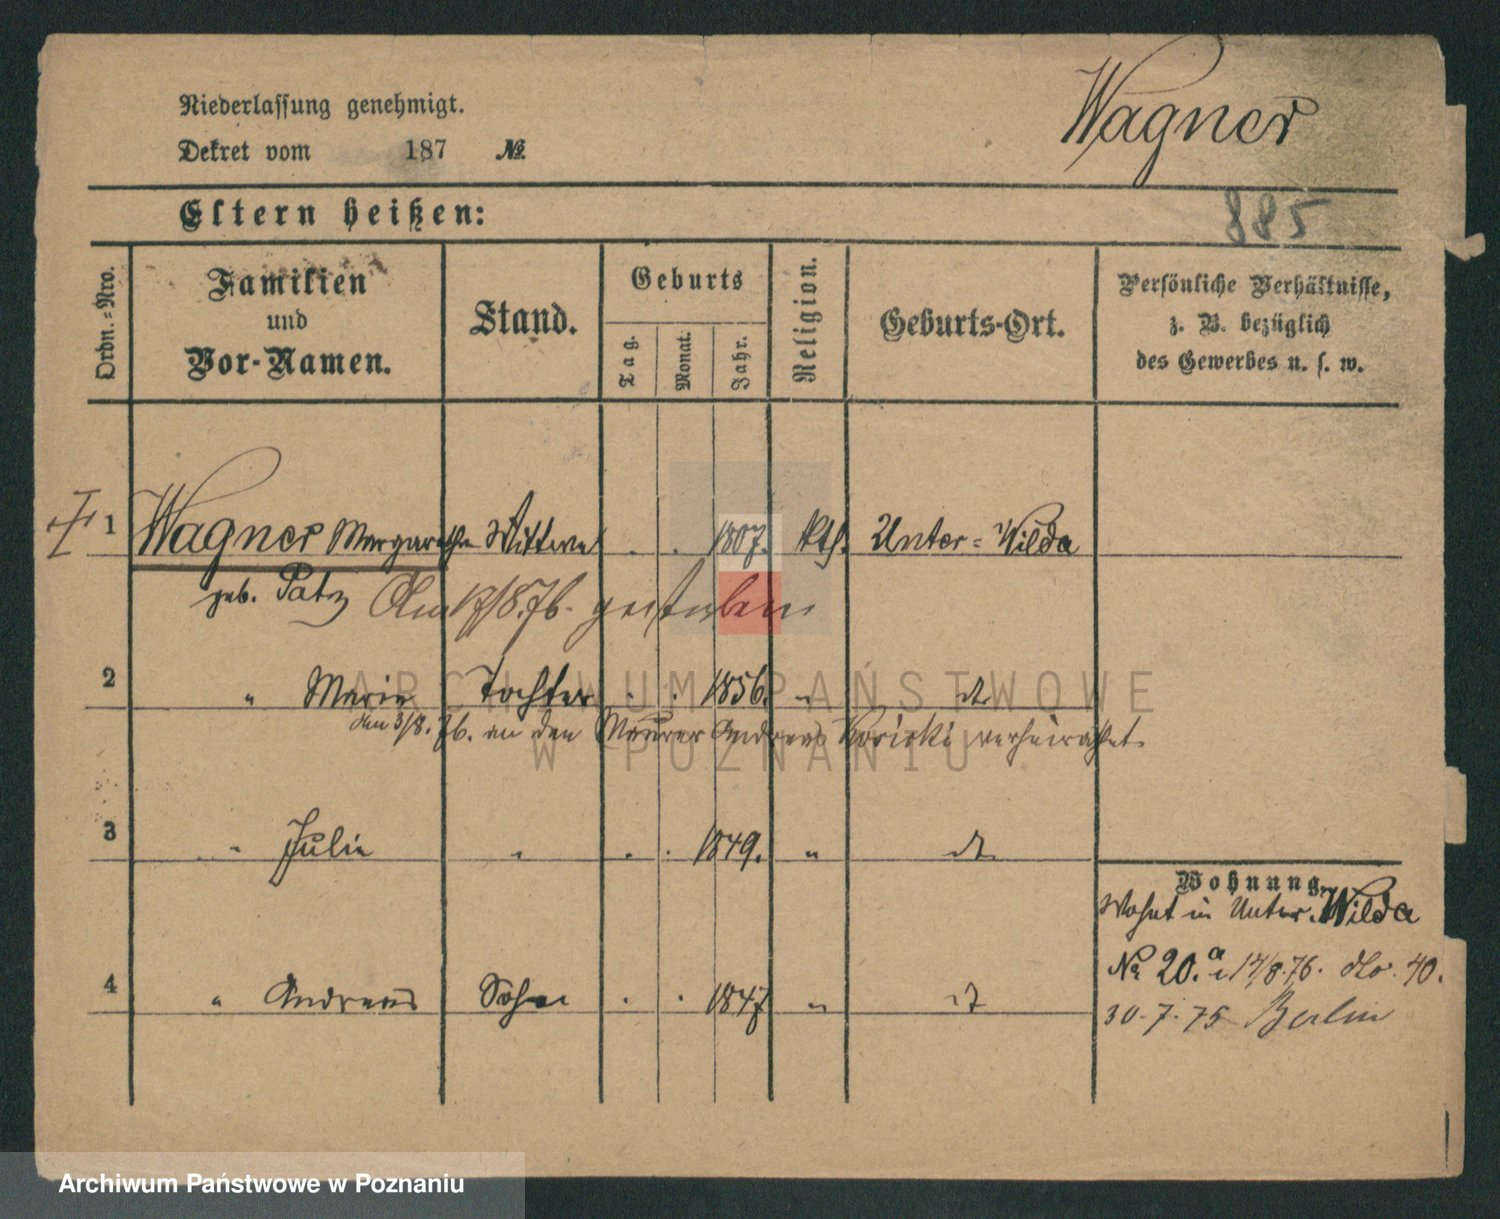 Niederlassung genehmigt.
Wagner
Dekret vom 187 №.
Eltern heißen:
885
Ordn.-Nro.
Familien
und
Vor-Namen.
Stand.
Geburts
Tag.
Monat.
Jahr.
Religion.
Geburts-Ort.
Persönliche Verhältnisse,
z. B. bezüglich
des Gewerbes u. s. w.
1 Wagner Margarethe Wittwe . . 1807. kth. Unter-Wilda
geb. Patz Am 17/8.76. gestorben
2 " Marie Tochter . . 1856. " dt
den 3/8.76. an den Maurer Andreas verheirathet
3 " Julie " . . 1849. " dt
Wohnung.
Wohnt in Unter-Wilda
4 " Andreas Sohn . . 1847 " dt
№ 20.a 17/8.76. dto. 40.
30.7.75 Berlin
ARCHIWUM PAŃSTWOWE
W POZNANIU
Archiwum Państwowe w Poznaniu